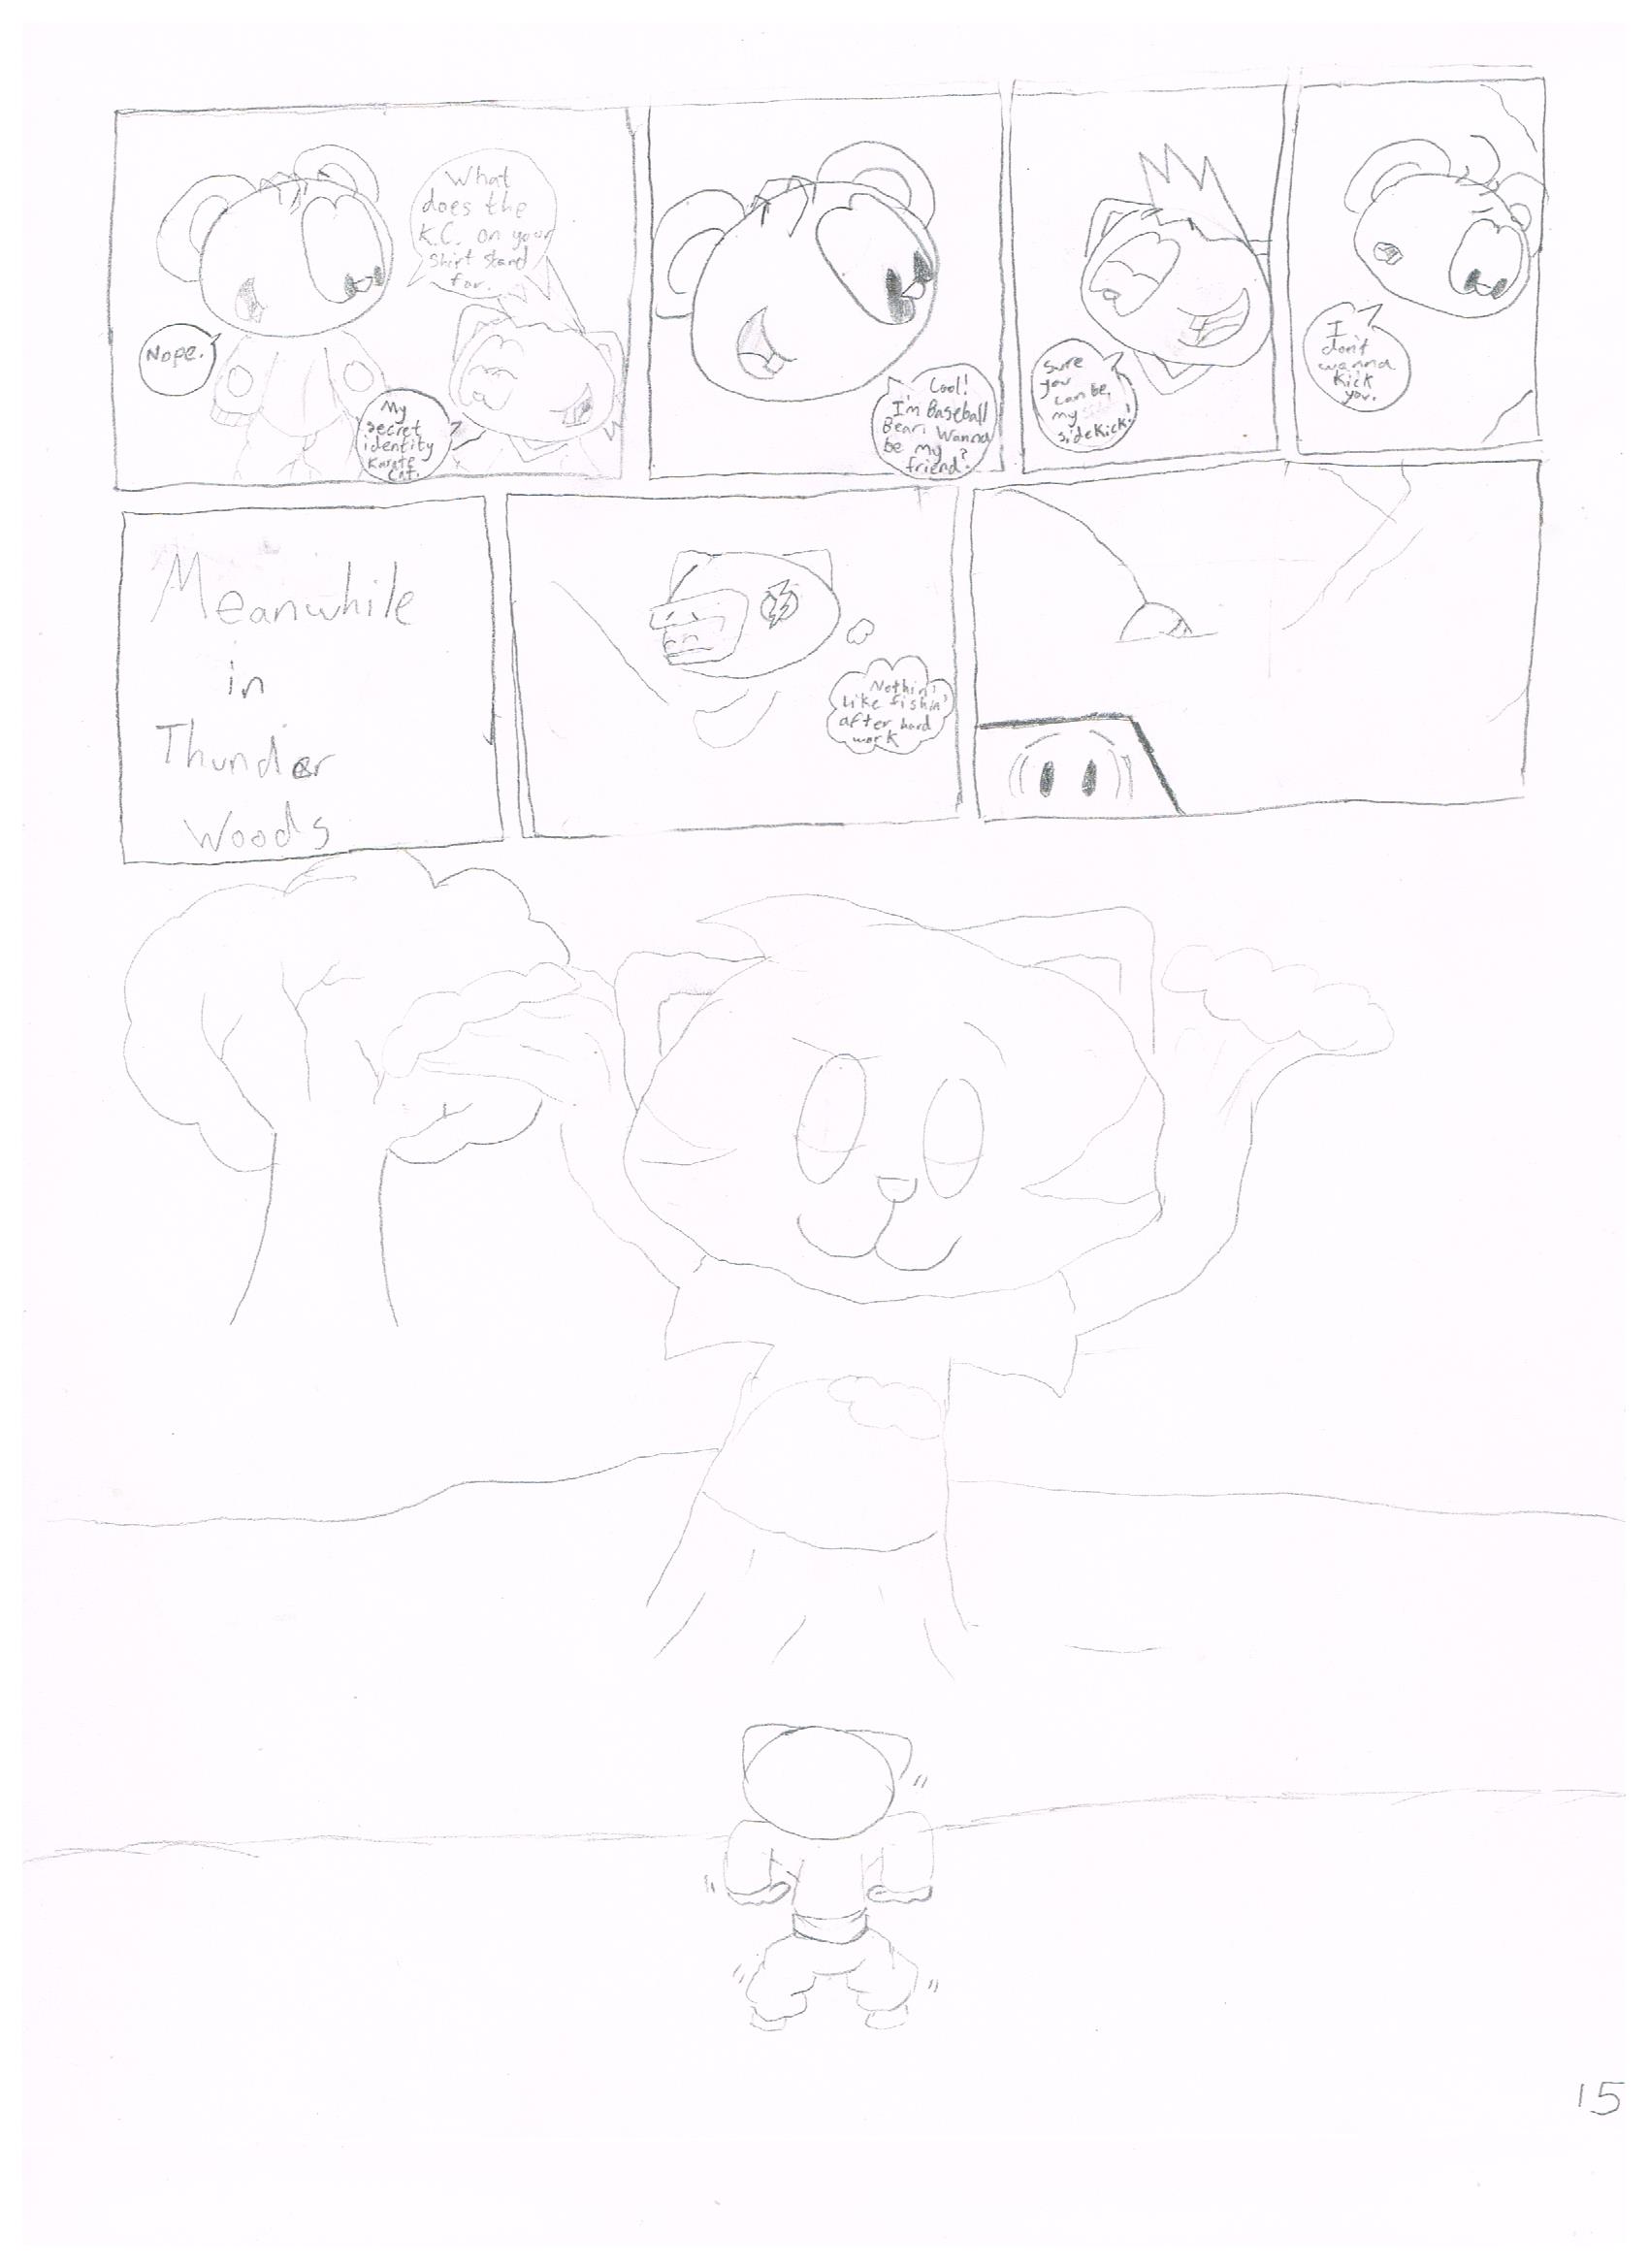 What
does the
K.C. on your
shirt stand
for.
Nope.
My
secret
identity
Karate
Cat.
Cool!
I'm Baseball
Bear. Wanna
be my
friend?
Sure
you
can be,
my
sidekick!
I
don't
wanna
kick
you.
Meanwhile
in
Thunder
Woods
Nothin'
like fishin'
after hard
work
15